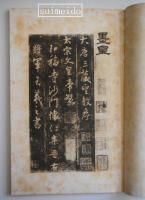 墨皇
大唐三藏聖教序
太宗文皇帝製
弘福寺沙門懷仁集晉右
將軍王羲之書
suimeido